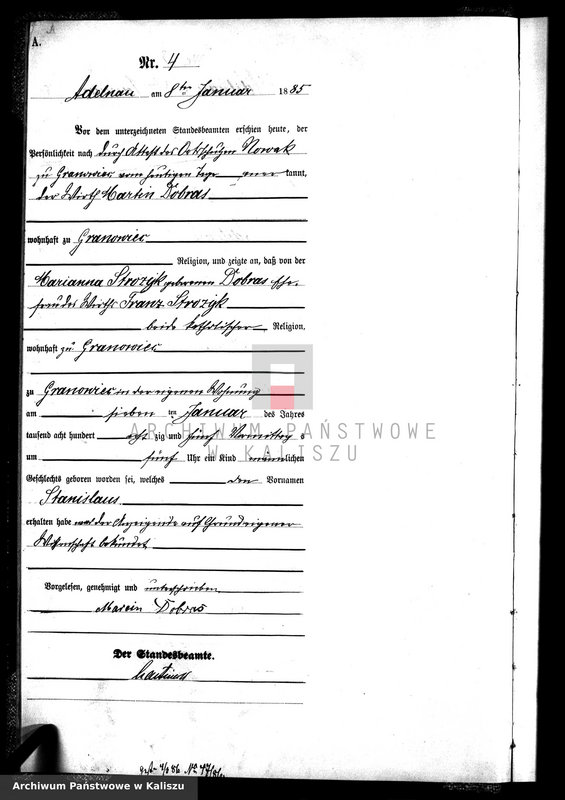 A.
Nr. 4
Adelnau am 8ten Januar 1885
Vor dem unterzeichneten Standesbeamten erschien heute, der
Persönlichkeit nach durch Attest des Ortsschulzen Nowak
zu Granowiec vom heutigen Tage aner kannt,
der Wirth Martin Dobras
wohnhaft zu Granowiec
Religion, und zeigte an, daß von der
Marianna Strozyk geborenen Dobras Ehe-
frau des Wirths Franz Strozyk
beide katholischer Religion,
wohnhaft zu Granowiec
zu Granowiec in der eigenen Wohnung
am sieben ten Januar des Jahres
tausend acht hundert acht zig und fünf Vormittags
um fünf Uhr ein Kind männlichen
Geschlechts geboren worden sei, welches den Vornamen
Stanislaus
erhalten habe was der Anzeigende auf Grund eigener
Wissenschaft bekundet
Vorgelesen, genehmigt und unterschrieben
Marcin Dobras
Der Standesbeamte.
ARCHIWUM PAŃSTWOWE
W KALISZU
Archiwum Państwowe w Kaliszu